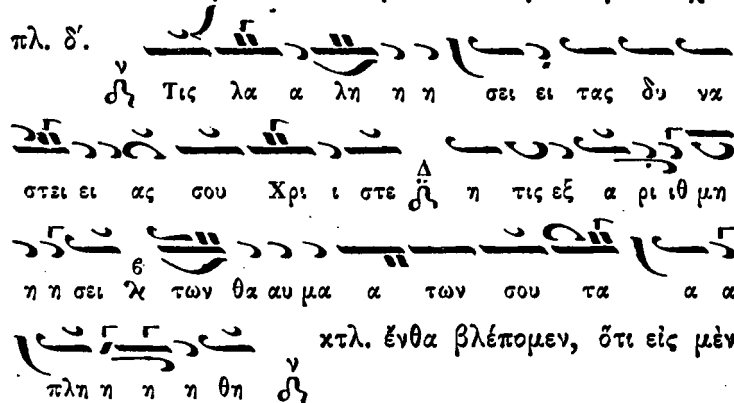 πλ. δ΄.
ν Τις λα α λη η η σει ει τας δυ να
στει ει ας σου Χρι ι στε Δ η τις εξ α ρι ιθ μη
η η σει β των θα αυ μα α των σου τα α α
πλη η η η θη ν κτλ. ἔνθα βλέπομεν, ὅτι εἰς μὲν